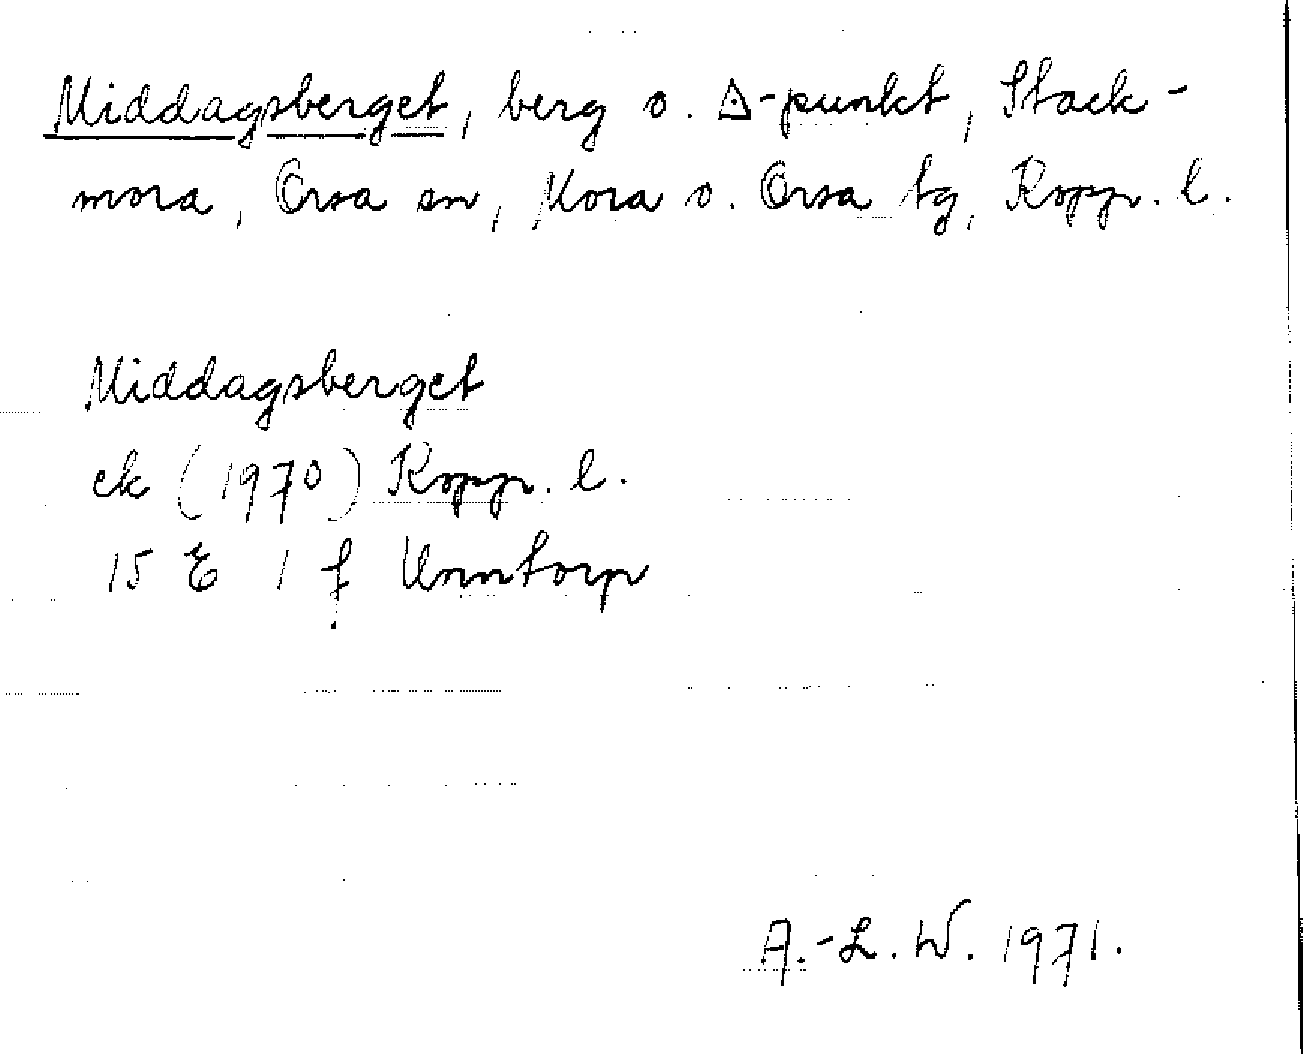 Middagsberget, berg o. △-punkt, Stack-
mora, Orsa sn, Mora o. Orsa tg, Kopp. l.
Middagsberget
ek (1970) Kopp. l.
15 E 1 f Unntorp
A.-L. W. 1971.